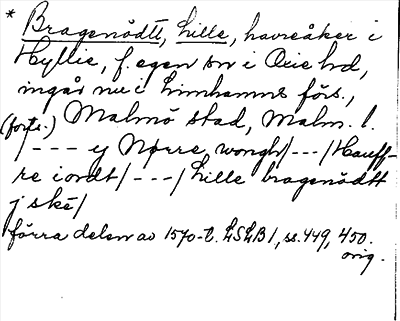 * Bragenödtt, lille, havreåker i
Hyllie, f. egen sn i Oxie hd,
ingår nu i Limhamns förs.,
(forts.) Malmö stad, Malm. l.
/--- ij Nørre wongh/---/Hauff-
re iordt/---/Lille bragenödtt
j ske/
förra delen av 1570-t. LSLB 1, ss. 449, 450.
orig.